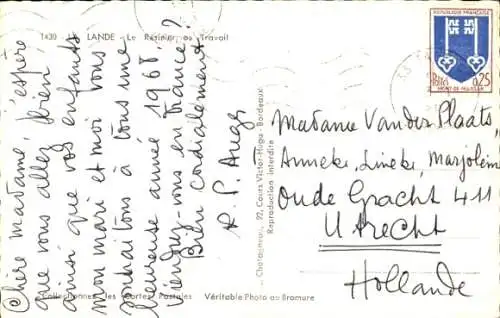 1430 LANDE - Le Résinier au Travail
Chère madame, j'espère
que vous allez bien
ainsi que vos enfants
mon mari et moi vous
souhaitons à tous une
heureuse année 1968,
viendrez-vous en France?
Bien cordialement
R. P. Auge
Chatagneau, 92, Cours Victor-Hugo - Bordeaux
Reproduction interdite
Collectionnez les Cartes Postales Véritable Photo au Bromure
REPUBLIQUE FRANÇAISE
0,25
MONT-DE-MARSAN
Madame Van der Plaats
Anneke, Lineke, Marjolein
Oude Gracht 411
Utrecht
Hollande